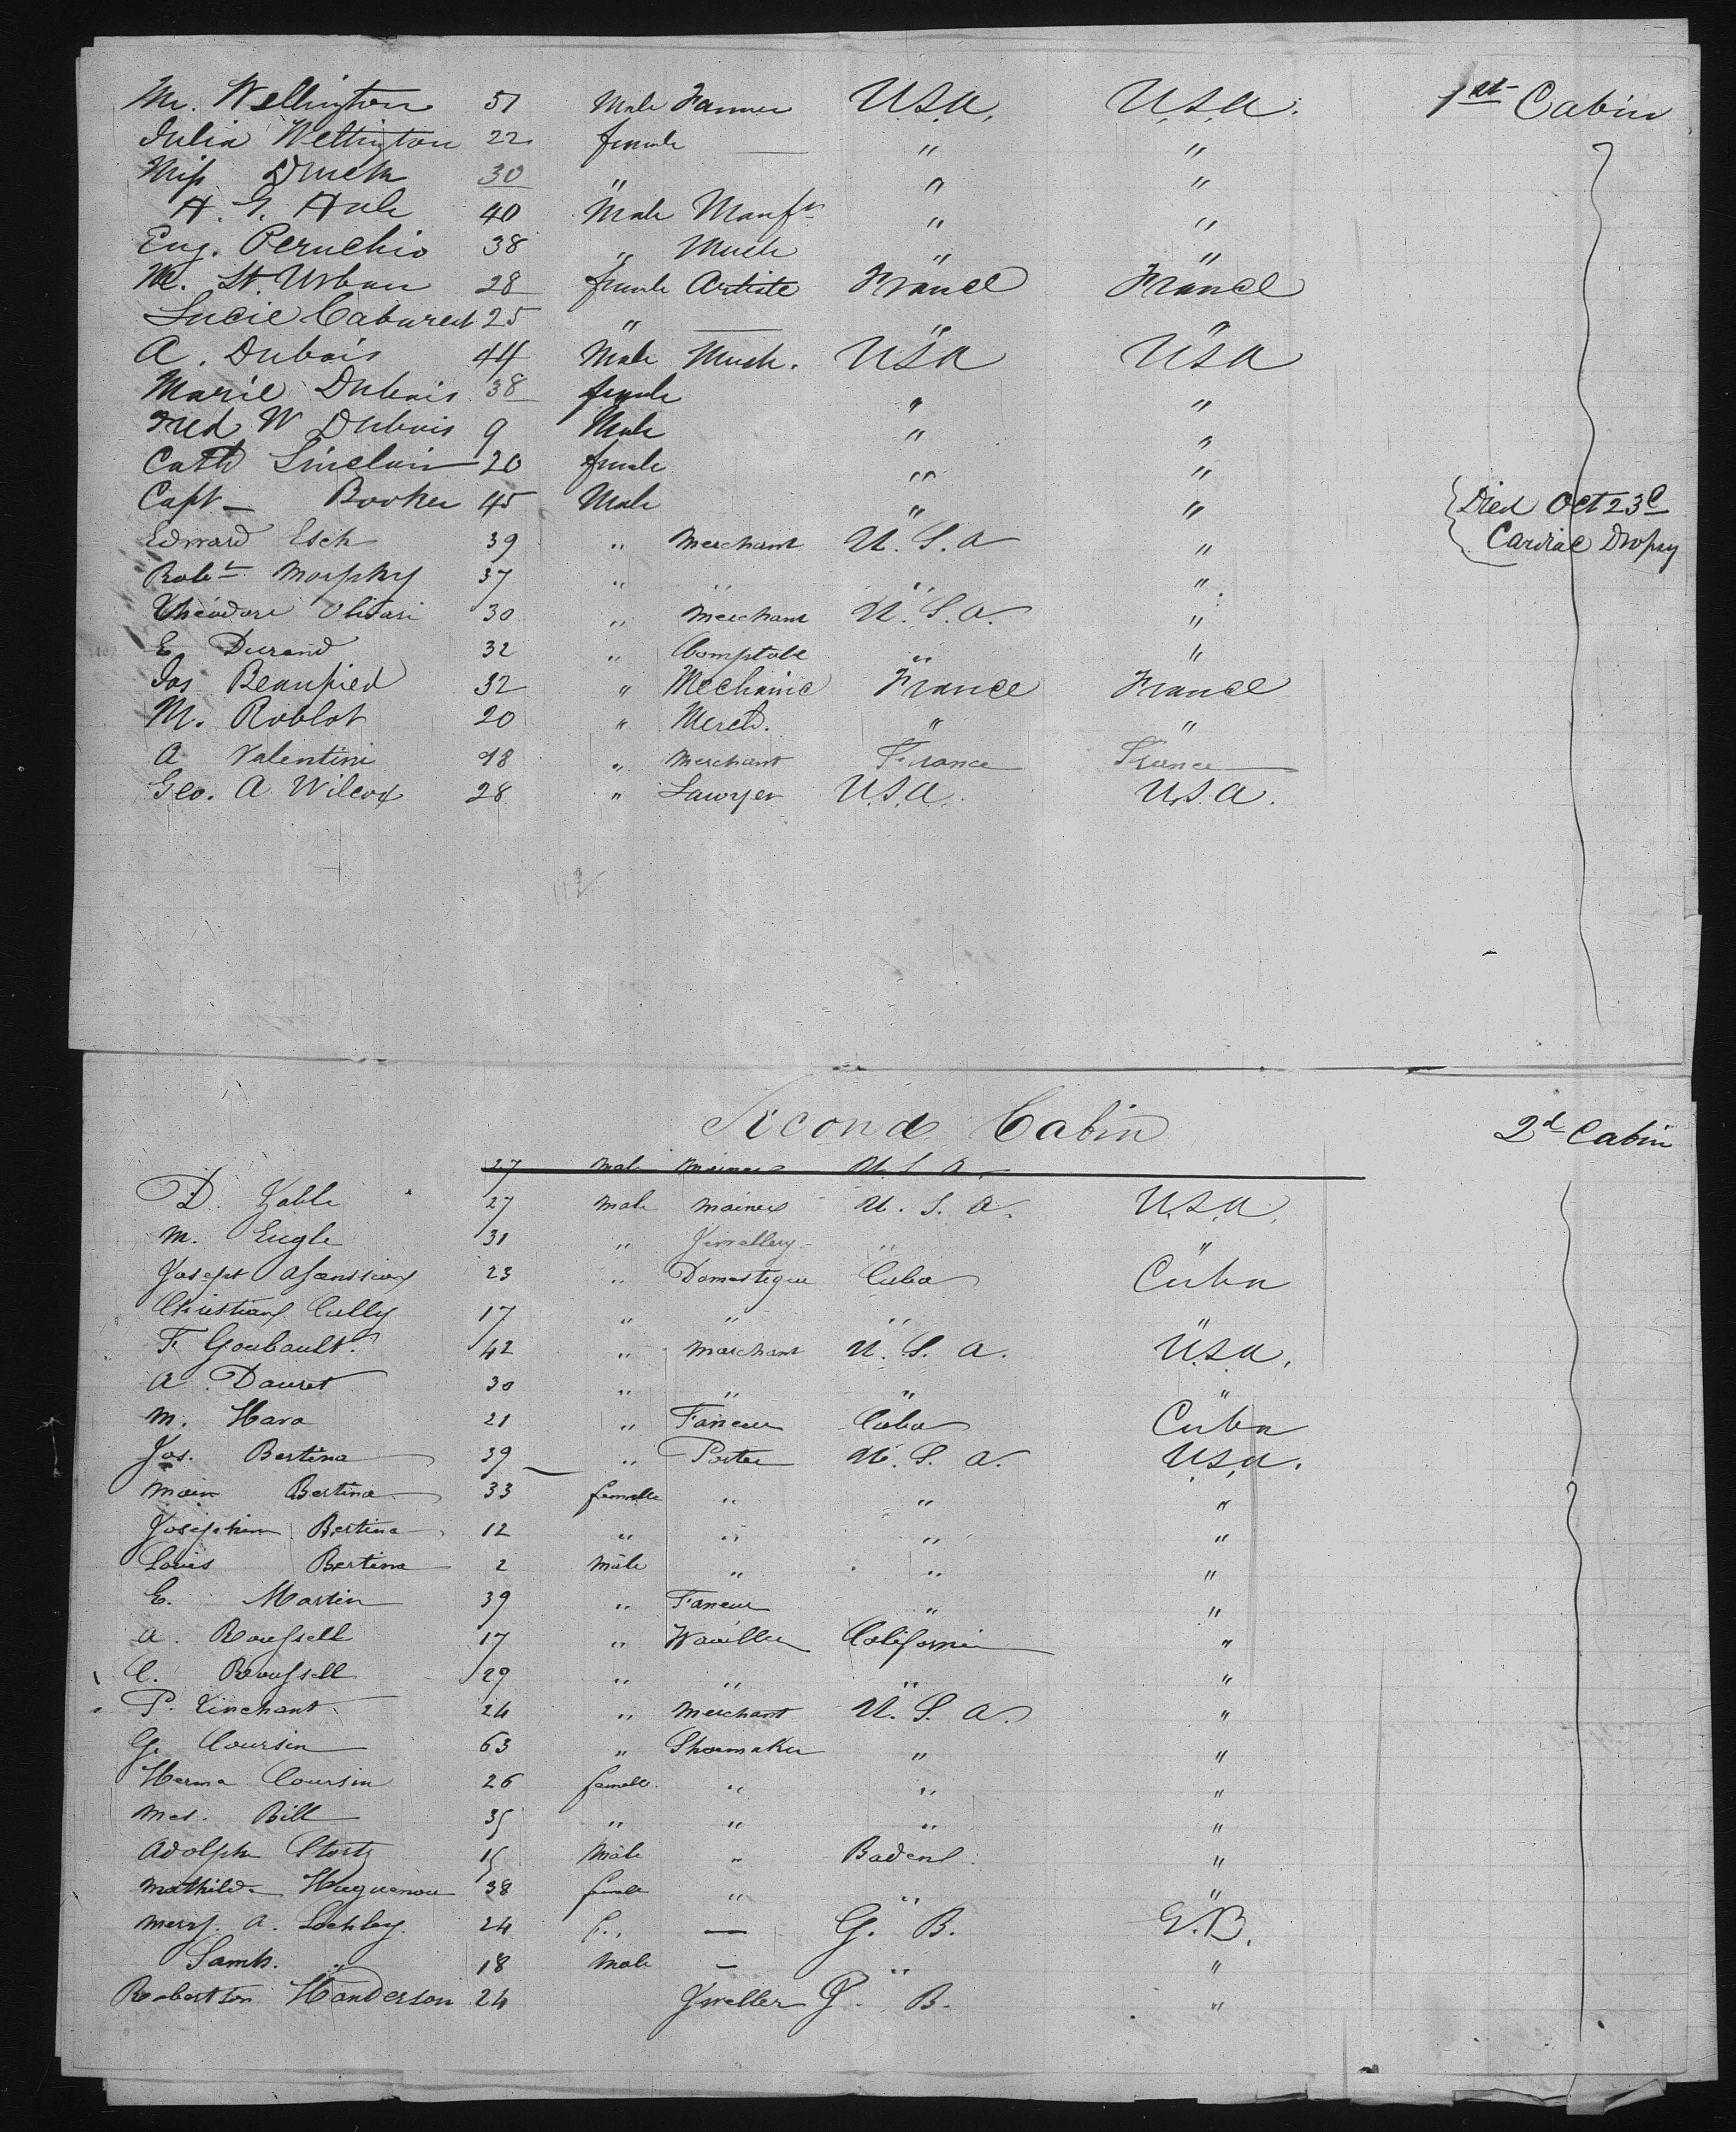 Mr. Wellington 51 Male Farmer U.S.A. U.S.A. 1st Cabin
Julia Wellington 22 female — " "
Miss 30 " " "
H. G. Hale 40 Male Manfr " "
Eug. Peruchio 38 " Much " "
Me. St. Urban 28 female Artiste France France
Lucie Cabaret 25 " — " "
A. Dubois 44 Male Much. USA USA
Marie Dubois 38 female " "
Fred W Dubois 9 Male " "
Cath Sinclair 20 female " "
Capt — Booker 45 Male " " Died Oct 23d
Edward Esch 39 " Merchant U.S.A " Cardiac Dropsy
Robt Morphy 37 " " " "
Theodore Olivari 30 " Merchant U.S.A. "
E. Durand 32 " Comptable " "
Jos Beaupied 32 " Mechanic France France
M. Roblot 20 " Merch. " "
A Valentini 48 " Merchant France France
Geo. A. Wilcox 28 " Lawyer U.S.A. U.S.A.
Second Cabin 2d Cabin
27 Male Mainer U.S.A.
D. Yable 27 Male Mainer U.S.A. U.S.A.
M. Eugle 31 " Jewellery " "
Joseph 23 " Domestique Cuba Cuba
Christian Cully 17 " " " "
F. Goubault. 42 " Marchant U.S.A. U.S.A.
A. Dauret 30 " " " "
M. Hara 21 " Faneur Cuba Cuba
Jos. Bertina 39 " Porter U.S.A. U.S.A.
Main Bertina 33 female " " "
Josephine Bertina 12 " " " "
Louis Bertina 2 Male " " "
E. Martin 39 " Faneur " "
A. Roussell 17 " California "
C. Roussell 29 " " " "
P. Linchant 24 " Merchant U.S.A. "
G. Coursin 63 " Shoemaker " "
Herma Coursin 26 female " " "
Mes. Bill 35 " " " "
Adolph Stortz 15 Male " Baden "
Mathilde Huguenou 38 female " " "
Merss. A. Lockley. 24 f.. — G. B. G.B.
Saml. " 18 Male — " "
Robertson Handerson 24 Jweller G. B. "